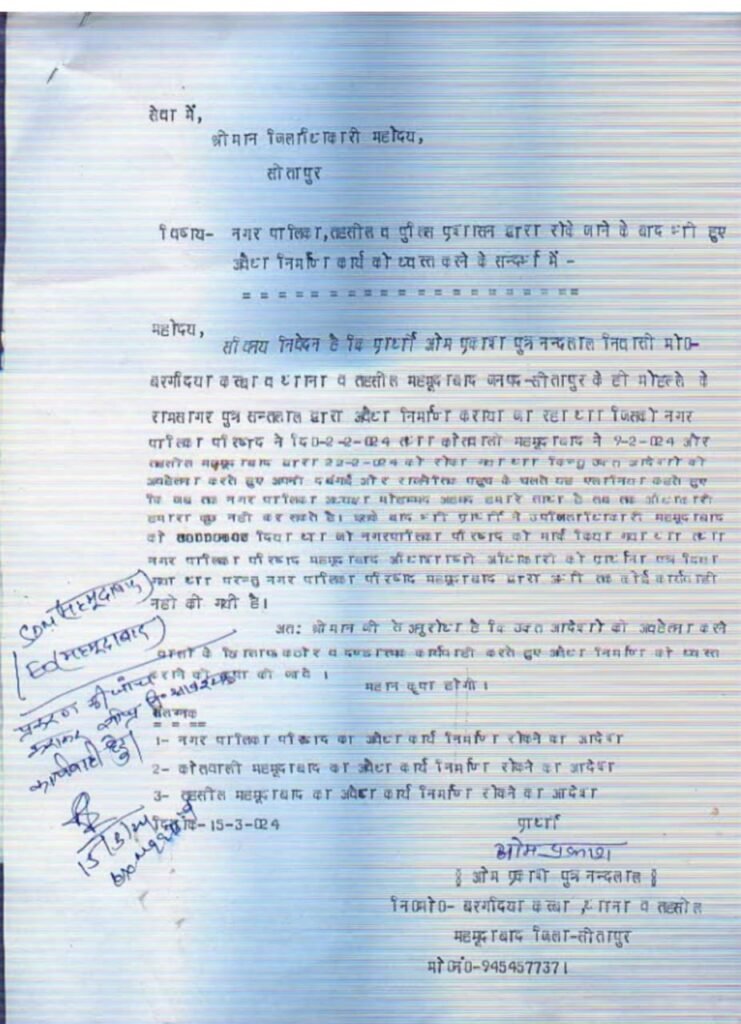 सेवा में,
श्रीमान जिलाधिकारी महोदय,
सीतापुर
विषय- नगर पालिका,तहसील व पुलिस प्रशासन द्वारा रोके जाने के बाद भी हुए
अवैध निर्माण कार्य को ध्वस्त करने के सन्दर्भ में -
= = = = = = = = = = = = = = = = = = = =
महोदय,
सविनय निवेदन है कि प्रार्थी ओम प्रकाश पुत्र नन्दलाल निवासी मो0-
बरगदिया कस्बा व थाना व तहसील महमूदाबाद जनपद-सीतापुर के ही मोहल्ले के
रामसागर पुत्र सन्तलाल द्वारा अवैध निर्माण कराया जा रहा था जिसको नगर
पालिका परिषद ने दि0-2-2-024 तथा कोतवाली महमूदाबाद ने 9-2-024 और
तहसील महमूदाबाद द्वारा 22-2-024 को रोका गया था किन्तु उक्त आदेशों की
अवहेलना करते हुए अपनी दबंगई और राजनैतिक पहुंच के चलते यह एलानिया कहते हुए
कि जब तक नगर पालिका अध्यक्ष मोहम्मद अहमद हमारे साथ है तब तक अधिकारी
हमारा कुछ नही कर सकते है। इसके बाद भी प्रार्थी ने उपजिलाधिकारी महमूदाबाद
को दिया था जो नगरपालिका परिषद को मार्क किया गया था तथा
नगर पालिका परिषद महमूदाबाद अधिशाषी अधिकारी को प्रार्थना पत्र दिया
गया था परन्तु नगर पालिका परिषद महमूदाबाद द्वारा अभी तक कोई कार्यवाही
नही की गयी है।
अतः श्रीमान जी से अनुरोध है कि उक्त आदेशों की अवहेलना करने
वालों के खिलाफ कठोर व दण्डात्मक कार्यवाही करते हुए अवैध निर्माण को ध्वस्त
कराने की कृपा की जाये ।
महान कृपा होगी ।
संलग्नक
= = = =
1- नगर पालिका परिषद का अवैध कार्य निर्माण रोकने का आदेश
2- कोतवाली महमूदाबाद का अवैध कार्य निर्माण रोकने का आदेश
3- तहसील महमूदाबाद का अवैध कार्य निर्माण रोकने का आदेश
दिनांक-15-3-024
प्रार्थी
ओम प्रकाश
ओम प्रकाश पुत्र नन्दलाल
नि0मो0- बरगदिया कस्बा ,थाना व तहसील
महमूदाबाद जिला-सीतापुर
मो0नं0-9454577371
SDM(महमूदाबाद)
EO(महमूदाबाद)
प्रकरण की जांच
कराकर शीघ्र आवश्यक
कार्यवाही हेतु।
15/3/24